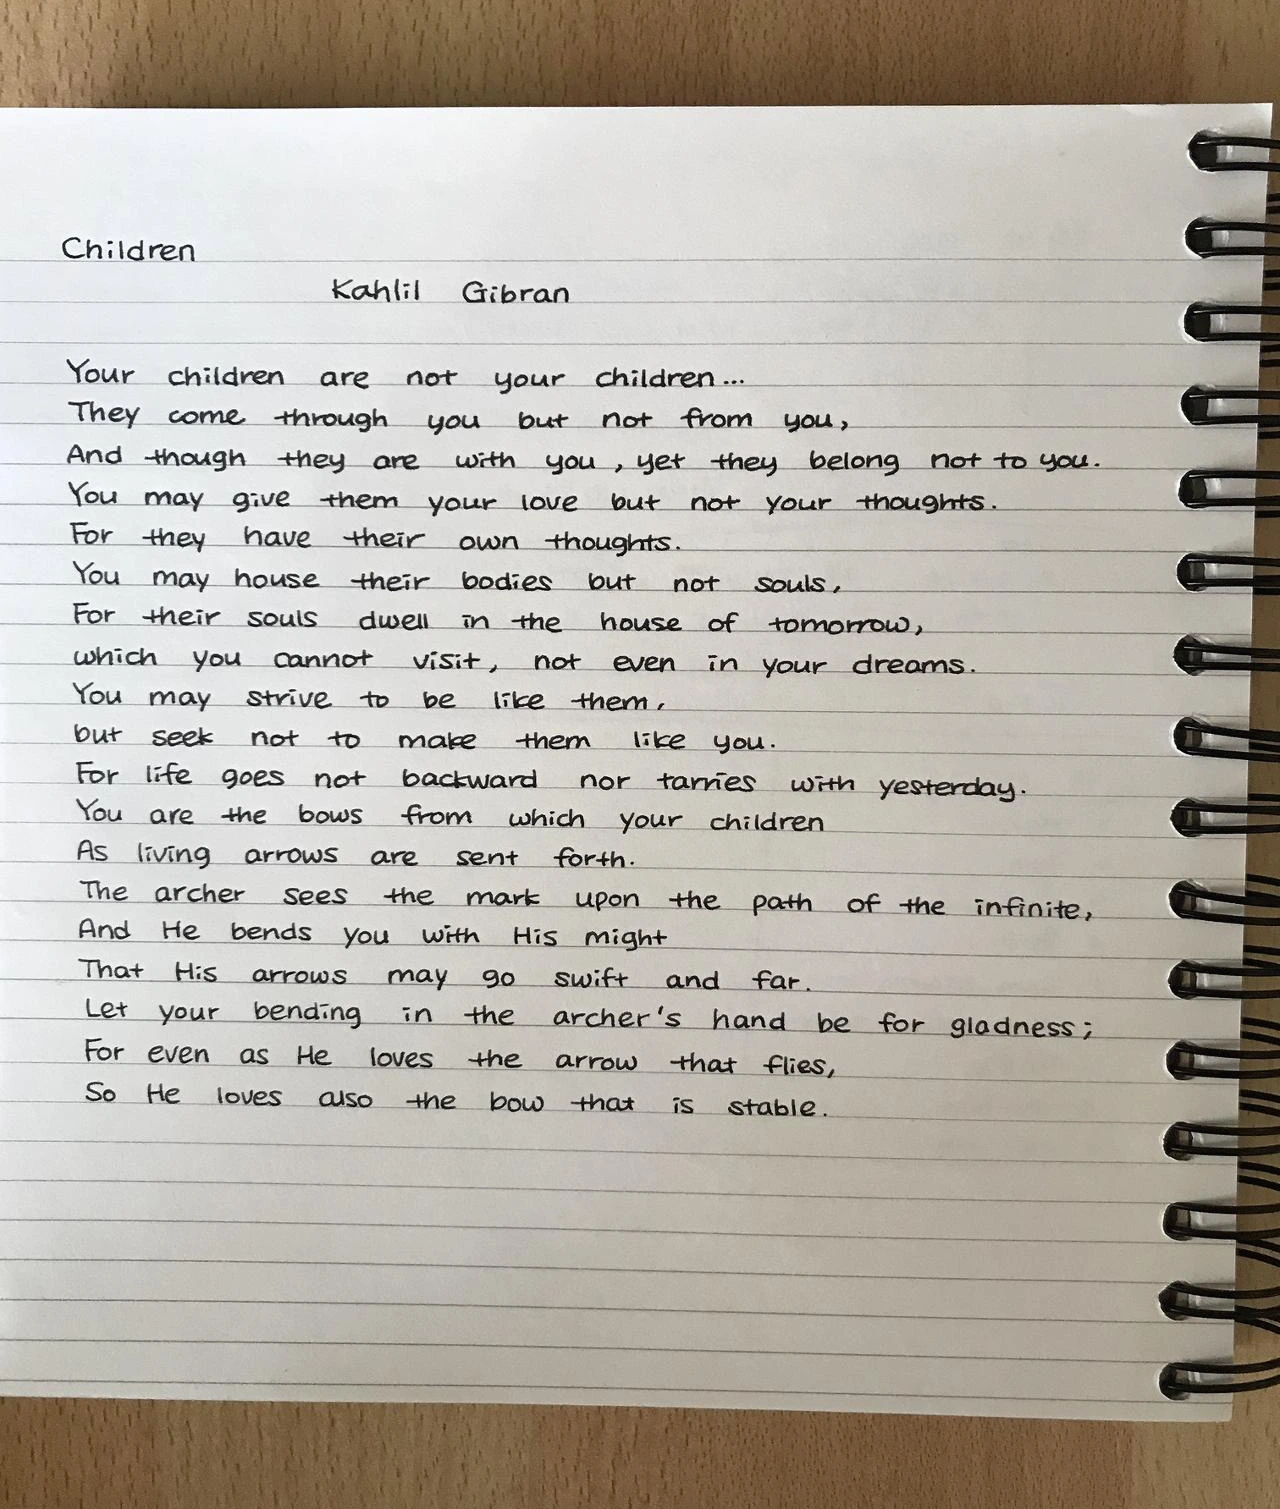 Children
Kahlil Gibran
Your children are not your children...
They come through you but not from you,
And though they are with you, yet they belong not to you.
You may give them your love but not your thoughts.
For they have their own thoughts.
You may house their bodies but not souls,
For their souls dwell in the house of tomorrow,
which you cannot visit, not even in your dreams.
You may strive to be like them,
but seek not to make them like you.
For life goes not backward nor tarries with yesterday.
You are the bows from which your children
As living arrows are sent forth.
The archer sees the mark upon the path of the infinite,
And He bends you with His might
That His arrows may go swift and far.
Let your bending in the archer's hand be for gladness;
For even as He loves the arrow that flies,
So He loves also the bow that is stable.